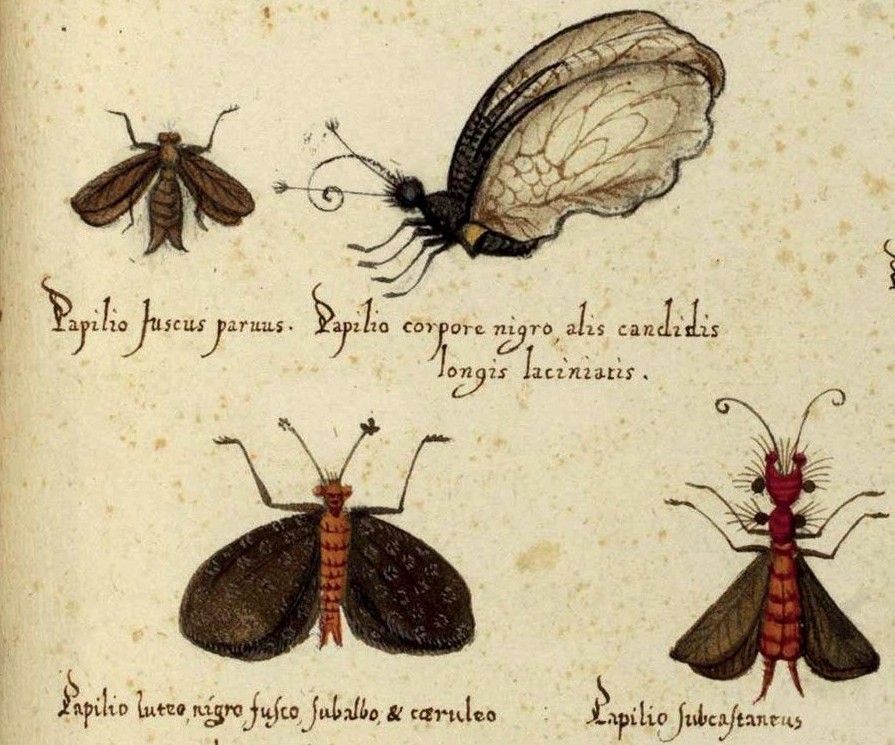 Papilio fuscus paruus. Papilio corpore nigro, alis candidis
longis laciniatis.
Papilio luteo, nigro fusco, subalbo, & cæruleo
Papilio subcastaneus